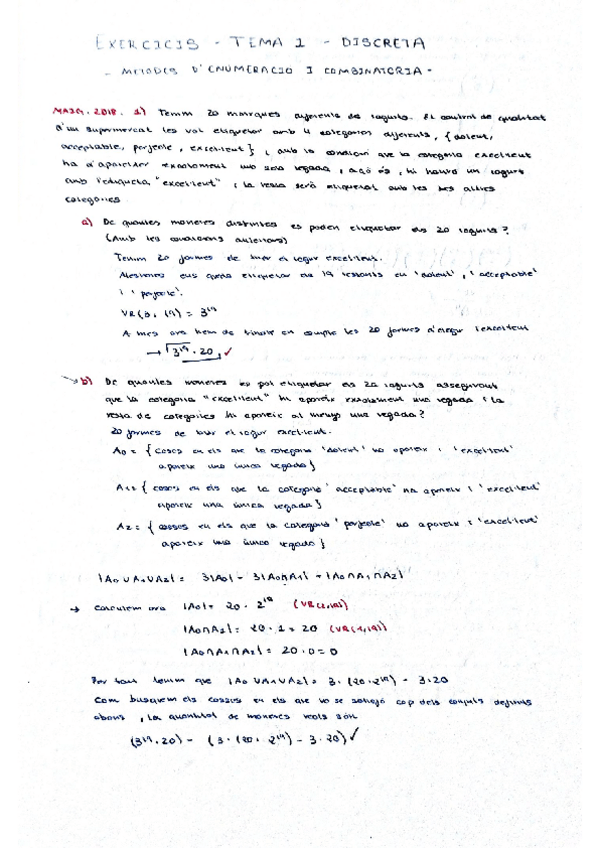 EXERCICIS - TEMA 1 - DISCRETA
- METODES D'ENUMERACIO I COMBINATORIA -
MAIG. 2018. 1) Tenim 20 marques diferents de iogurts. El control de qualitat
d'un supermercat les vol etiquetar amb 4 categories diferents, {dolent,
acceptable, perfecte, excel·lent}, amb la condició que la categoria excel·lent
ha d'aparèixer exactament una sola vegada, açò és, hi haurà un iogurt
amb l'etiqueta "excel·lent", i la resta serà etiquetat amb les tres altres
categories.
a) De quantes maneres distintes es poden etiquetar els 20 iogurts?
(Amb les condicions anteriors)
Tenim 20 formes de triar el iogur excel·lent.
Aleshores ens queda etiquetar els 19 restants en 'dolent', 'acceptable'
i 'perfecte'.
VR(3, 19) = 3¹⁹
A mes ara hem de tindre en compte les 20 formes d'elegir l'excel·lent
→ 3¹⁹ · 20 ✓
b) De quantes maneres es pot etiquetar els 20 iogurts assegurant
que la categoria "excel·lent" hi apareix exactament una vegada i la
resta de categories hi apareix al menys una vegada?
20 formes de triar el iogur excel·lent.
A₀ = { casos en els que la categoria 'dolent' no apareix i 'excel·lent'
apareix una única vegada }
A₁ = { casos en els que la categoria 'acceptable' no apareix i 'excel·lent'
apareix una única vegada }
A₂ = { casos en els que la categoria 'perfecte' no apareix i 'excel·lent'
apareix una única vegada }
|A₀ ∪ A₁ ∪ A₂| = 3|A₀| - 3|A₀∩A₁| + |A₀∩A₁∩A₂|
→ Calculem ara |A₀| = 20 · 2¹⁹ (VR(2,19))
|A₀∩A₁| = 20 · 1 = 20 (VR(1,19))
|A₀∩A₁∩A₂| = 20 · 0 = 0
Per tant tenim que |A₀ ∪ A₁ ∪ A₂| = 3 · (20 · 2¹⁹) - 3 · 20
Com busquem els casos en els que no se satisfà cap dels conjuts definits
abans, la quantitat de maneres reals són
(3¹⁹ · 20) - (3 · (20 · 2¹⁹) - 3 · 20) ✓